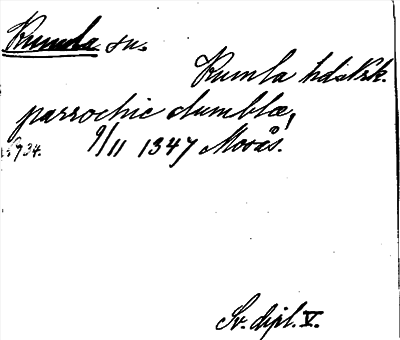 Kumla sn.
Kumla hds Krk.
parrochie Cumblæ,
9/11 1347 Morås.
1934.
Sv. dipl. V.